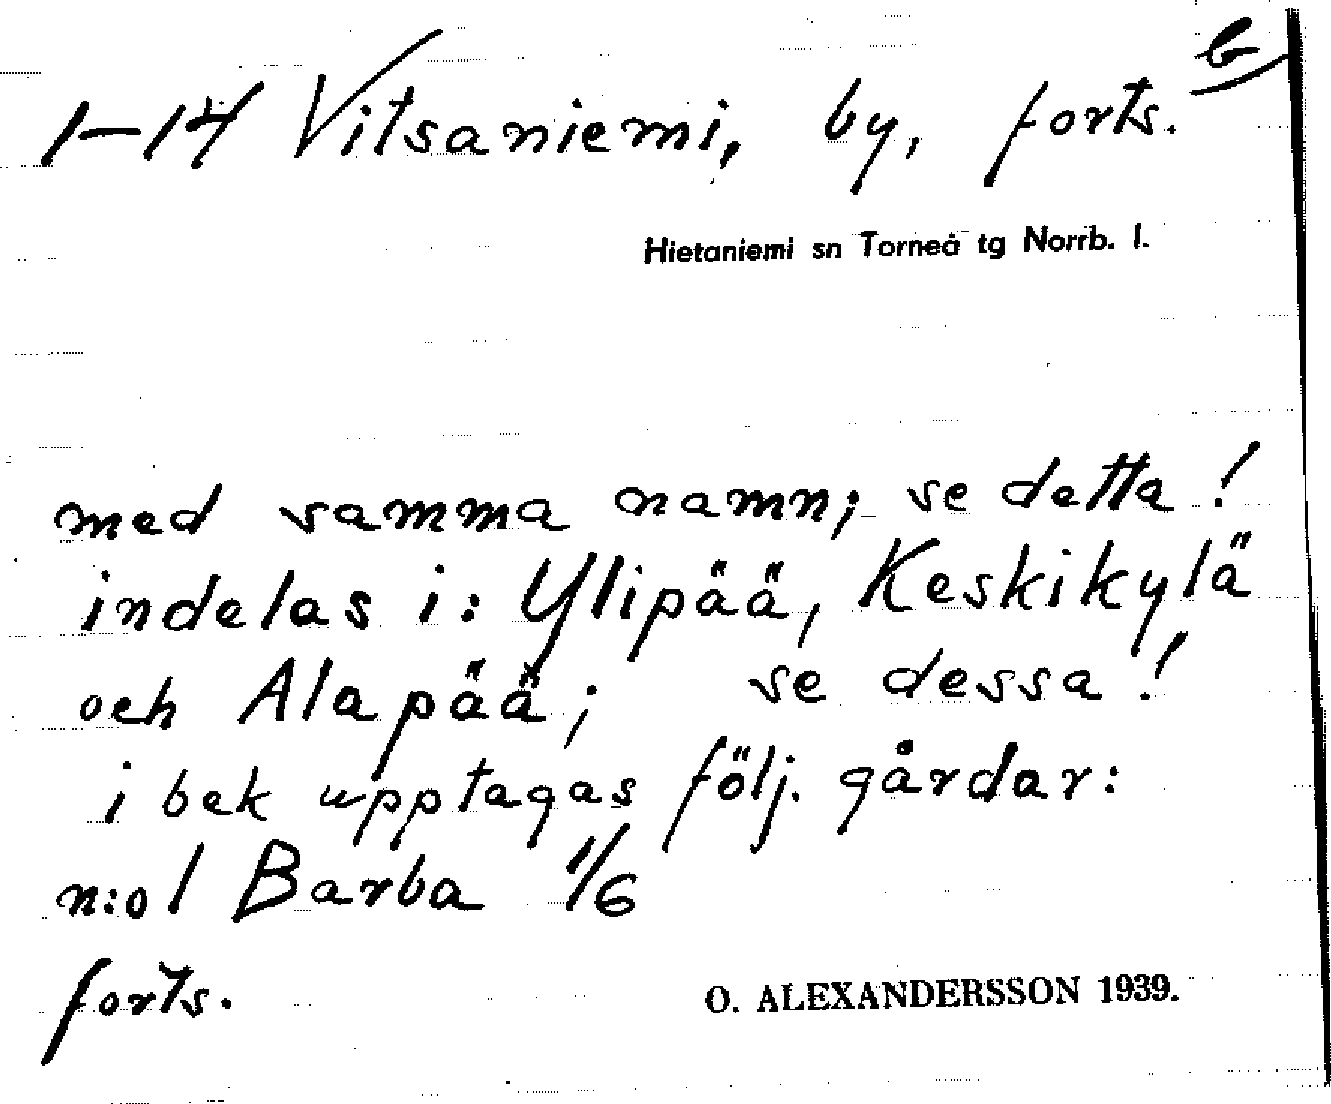 b
1-14 Vitsaniemi, by, forts.
Hietaniemi sn Torneå tg Norrb. l.
med samma namn; se detta!
indelas i: Ylipää, Keskikylä
och Alapää; se dessa!
i bek upptagas följ. gårdar:
n:o 1 Barba 1/6
forts.
O. ALEXANDERSSON 1939.